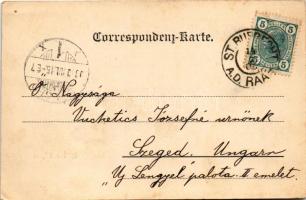 Correspondenz-Karte.
5 5
ST. RUPRECHT
A.D. RAAB
Ő Nagysága
Vuchetics Józsefné urnőnek
Szeged. Ungarn
"Uj Lengyel" palota. II emelet.